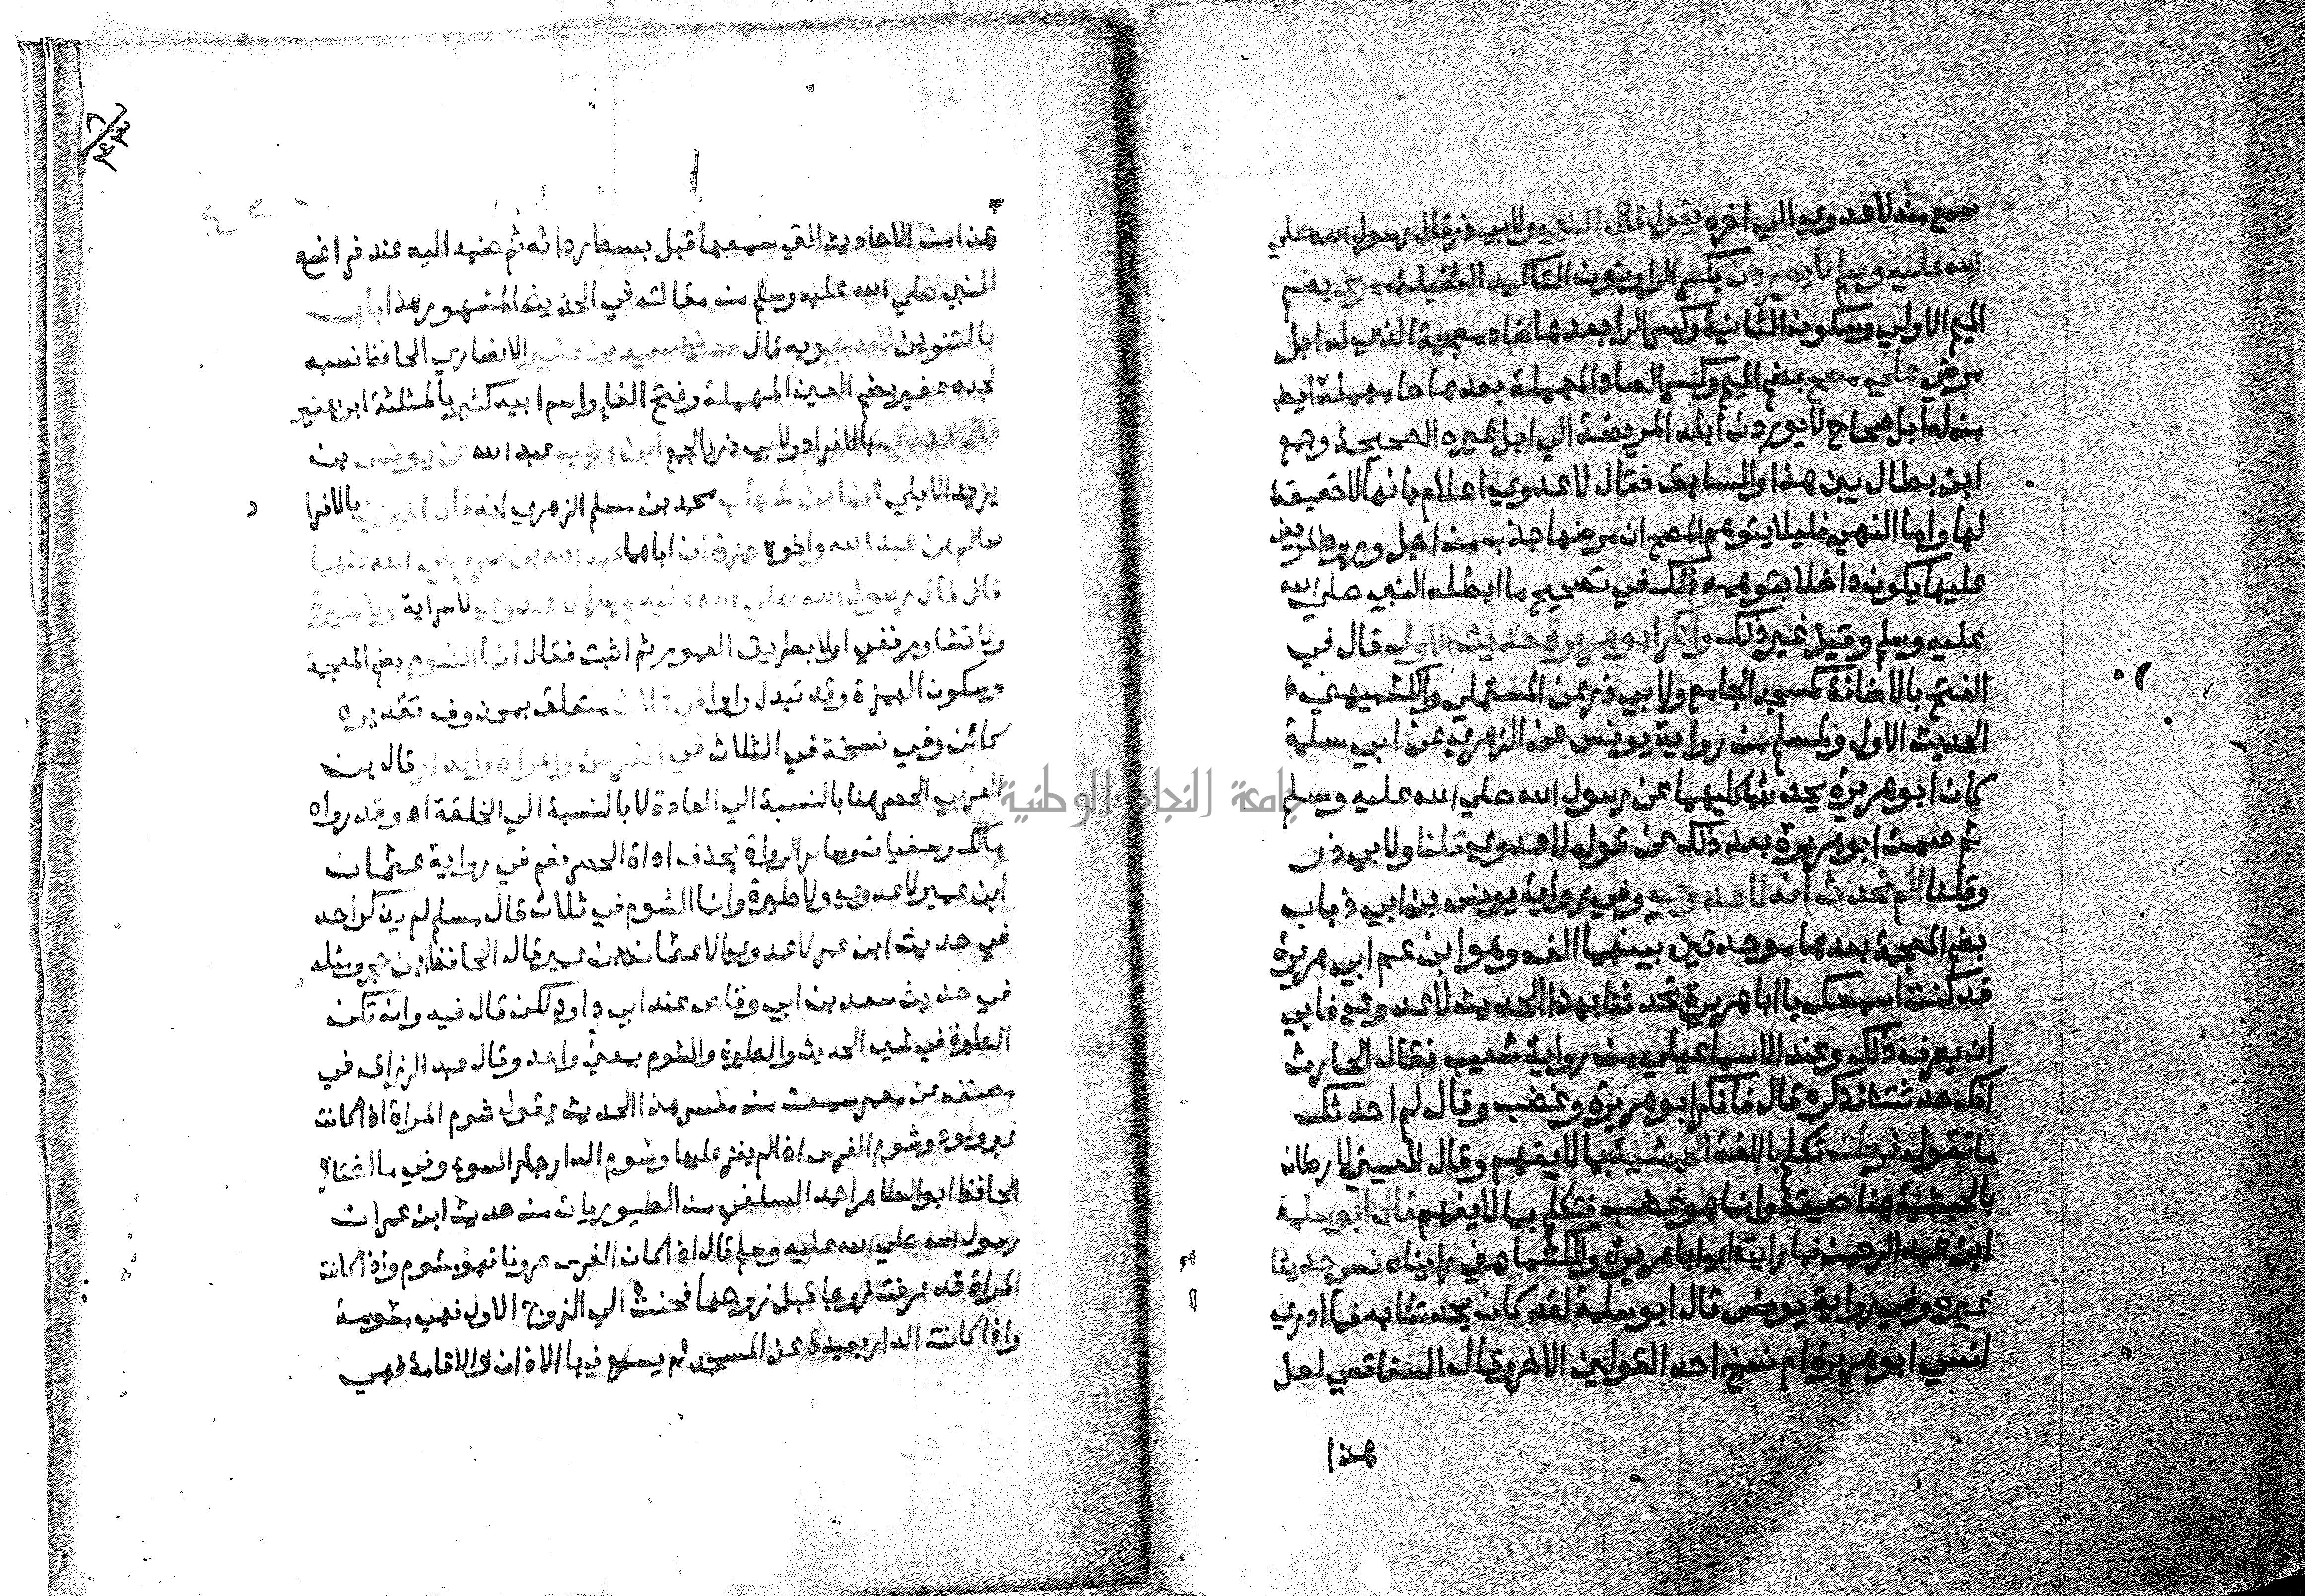 سمع منه لا عدوي الي اخره يقول قال النبي ولابي ذر قال رسول الله صلي
الله عليه وسلم لا يوردن بكسر الرا ونون التاكيد الثقيلة ممرض بضم
الميم الاولي وسكون الثانية وكسر الرا بعدها ضاد معجمة الذي له ابل
مرضي علي مصح بضم الميم وكسر الصاد المهملة بعدها حا مهملة ايضا
من له ابل صحاح لا يوردن ابله المريضة الي ابل غيره الصحيحة وجمع
ابن بطال بين هذا والسابق فقال لا عدوي اعلام بانها لا حقيقة
لها واما النهي فليلا يتوهم المصح ان مرضها حدث من اجل ورود المريض
عليها يكون داخلا بتوهمه ذلك في تصحيح ما ابطله النبي صلي الله
عليه وسلم وقيل غير ذلك وانكر ابو هريرة حديث الاول قال في
الفتح بالاضافة كمسجد الجامع ولابي ذر عن المستملي والكشميهني
الحديث الاول ولمسلم من رواية يونس عن الزهري عن ابي سلمة
كان ابو هريرة يحدثهما كليهما عن رسول الله صلي الله عليه وسلم
ثم صمت ابو هريرة بعد ذلك عن قوله لا عدوي قلنا ولابي ذر
وقلنا الم تحدث انه لا عدوي وفي رواية يونس بن ابي ذباب
بضم المعجمة بعدها موحدتين بينهما الف وهو ابن عم ابي هريرة
قد كنت اسمعك يا ابا هريرة تحدثنا بهذا الحديث لا عدوي فابي
ان يعرف ذلك وعند الاسماعيلي من رواية شعيب فقال الحارث
انك حدثتنا فذكره قال فانكر ابو هريرة وغضب وقال لم احدثك
ما تقول فرطن تكلم باللغة الحبشية بما لا يفهم وقال العيني لا رطانة
بالحبشية هنا حقيقة وانما هو غضب فتكلم بما لا يفهم قال ابو سلمة
ابن عبد الرحمن فما رايته اي ابا هريرة وللكشميهني رايناه نسي حديثا
غيره وفي رواية يونس قال ابو سلمة لقد كان يحدثنا به فما ادري
انسي ابو هريرة ام نسخ احد القولين الاخر وقال السفاقسي لعل
هذا
هذا من الاحاديث التي سمعها قبل بسط ردائه ثم ضمه اليه عند فراغ
النبي صلي الله عليه وسلم من مقالته في الحديث المشهور هذا باب
بالتنوين لا عدوي وبه قال حدثنا سعيد بن عفير الانصاري الحافظ نسبه
لجده عفير بضم العين المهملة وفتح الفاء واسم ابيه كثير بالمثلثة ابن عفير
قال حدثني بالافراد ولابي ذر بالجمع ابن وهب عبد الله عن يونس بن
يزيد الايلي عن ابن شهاب محمد بن مسلم الزهري انه قال اخبرني بالافراد
سالم بن عبد الله واخوه حمزة ان اباهما عبد الله بن عمر رضي الله عنهما
قال قال رسول الله صلي الله عليه وسلم لا عدوي لا سراية ولا طيرة
ولا تشاوم فنفي اولا بطريق العموم ثم اثبت فقال انما الشوم بضم المعجمة
وسكون الهمزة وقد تبدل واوا في ثلاث متعلق بمحذوف تقديره
كائن وفي نسخة في الثلاث في الفرس والمراة والدار قال بن
العربي الحصر هنا بالنسبة الي العادة لا بالنسبة الي الخلقة اه وقد رواه
مالك وسفيان وساير الرواة بحذف اداة الحصر نعم في رواية عثمان
ابن عمير لا عدوي ولا طيرة وانما الشوم في ثلاث قال مسلم لم يذكر احد
في حديث ابن عمر لا عدوي الا عثمان بن عمير قال الحافظ ابن حجر ومثله
في حديث سعد بن ابي وقاص عند ابي داود لكن قال فيه وان تكن
الطيرة في شي الحديث والطيرة والشوم بمعني واحد وقال عبد الرزاق في
مصنفه عن معمر سمعت من يفسر هذا الحديث يقول شوم المراة اذا كانت
غير ولود وشوم الفرس اذا لم يغز عليها وشوم الدار جار السوء وفي ما اختاره
الحافظ ابو الطاهر احمد السلفي من الطيوريات من حديث ابن عمر ان
رسول الله صلي الله عليه وسلم قال اذا كان الفرس حرونا فهو شوم واذا كانت
المراة قد عرفت زوجا قبل زوجها فحنت الي الزوج الاول فهي مشومة
واذا كانت الدار بعيدة عن المسجد لم يسمع فيها الاذان والاقامة فهي
جامعة النجاح الوطنية